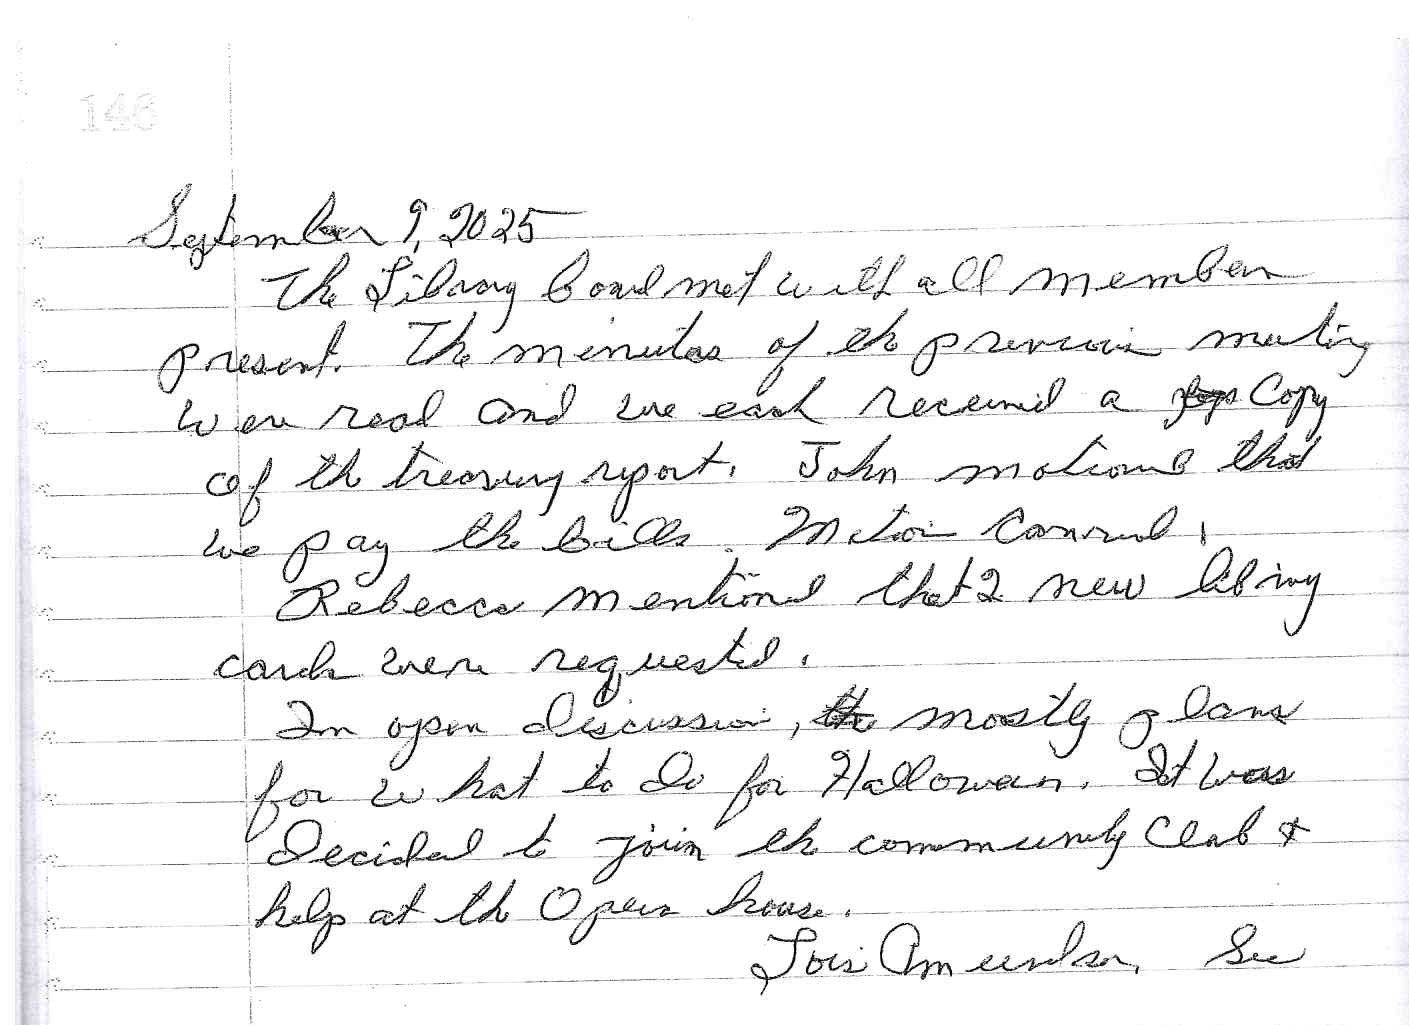 146
September 9, 2025
The Library board met with all members
present. The minutes of the previous meeting
were read and we each received a copy
of the treasury report. John motioned that
we pay the bills. Motion carried.
Rebecca mentioned that 2 new library
cards were requested.
In open discussion, the mostly plans
for what to do for Halloween. It was
decided to join the community Club &
help at the Open house.
Lois Amundson, Sec